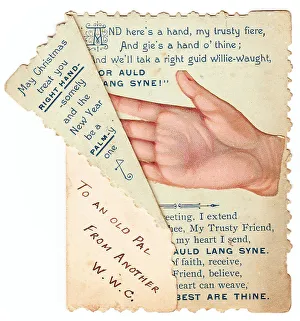 AND here's a hand, my trusty fiere,
And gie's a hand o' thine;
And we'll tak a right guid willie-waught,
FOR AULD
LANG SYNE!"
May Christmas
treat you
RIGHT HAND-
-somely
and the
New Year
be a
PALM-y
one
TO AN OLD PAL
FROM ANOTHER
W.W.C.
eeting. I extend
ee, My Trusty Friend,
my heart I send,
AULD LANG SYNE.
of faith, receive,
Friend, believe,
heart can weave,
BEST ARE THINE.